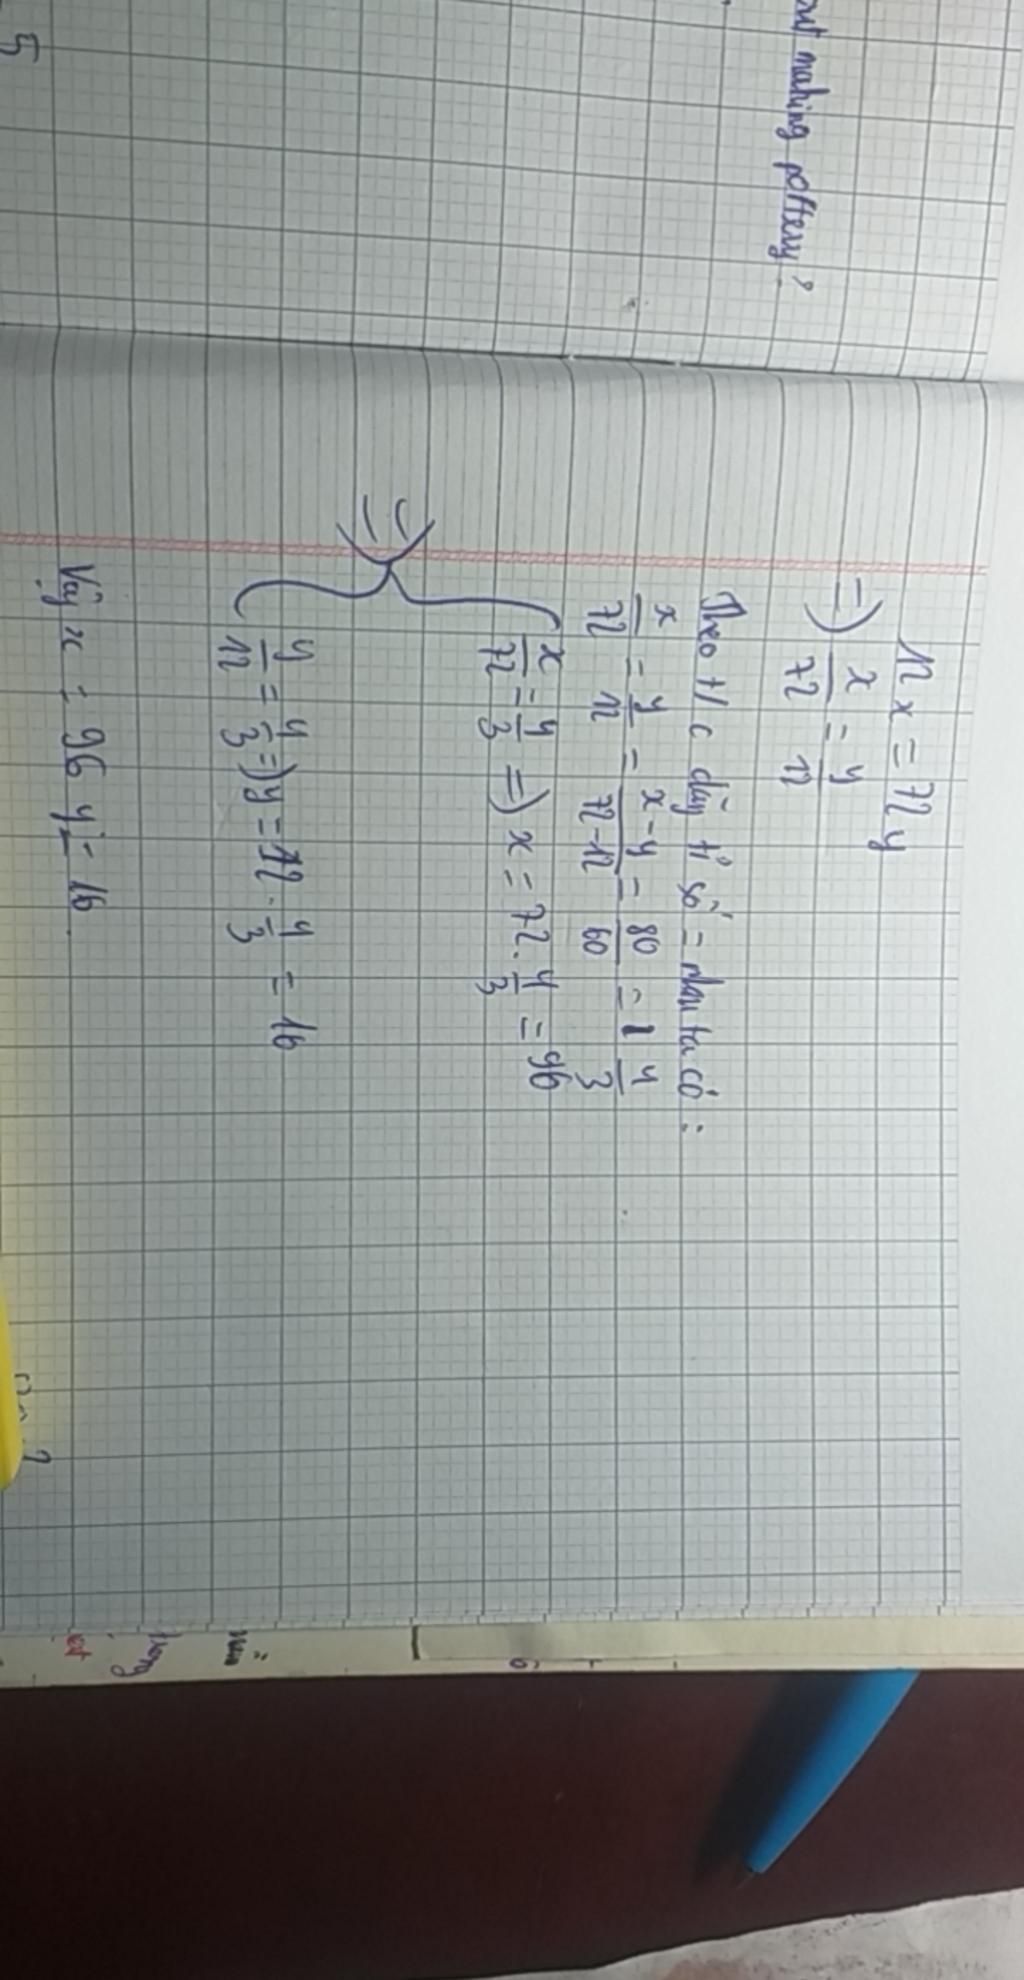 out making pottery?
5
12x = 72y
=) x/72 = y/12
Theo t/c dãy tỉ số = nhau ta có :
x/72 = y/12 = x-y/72-12 = 80/60 = 4/3
=) { x/72 = 4/3 =) x = 72 . 4/3 = 96
y/12 = 4/3 =) y = 12 . 4/3 = 16
Vậy x = 96 y = 16.